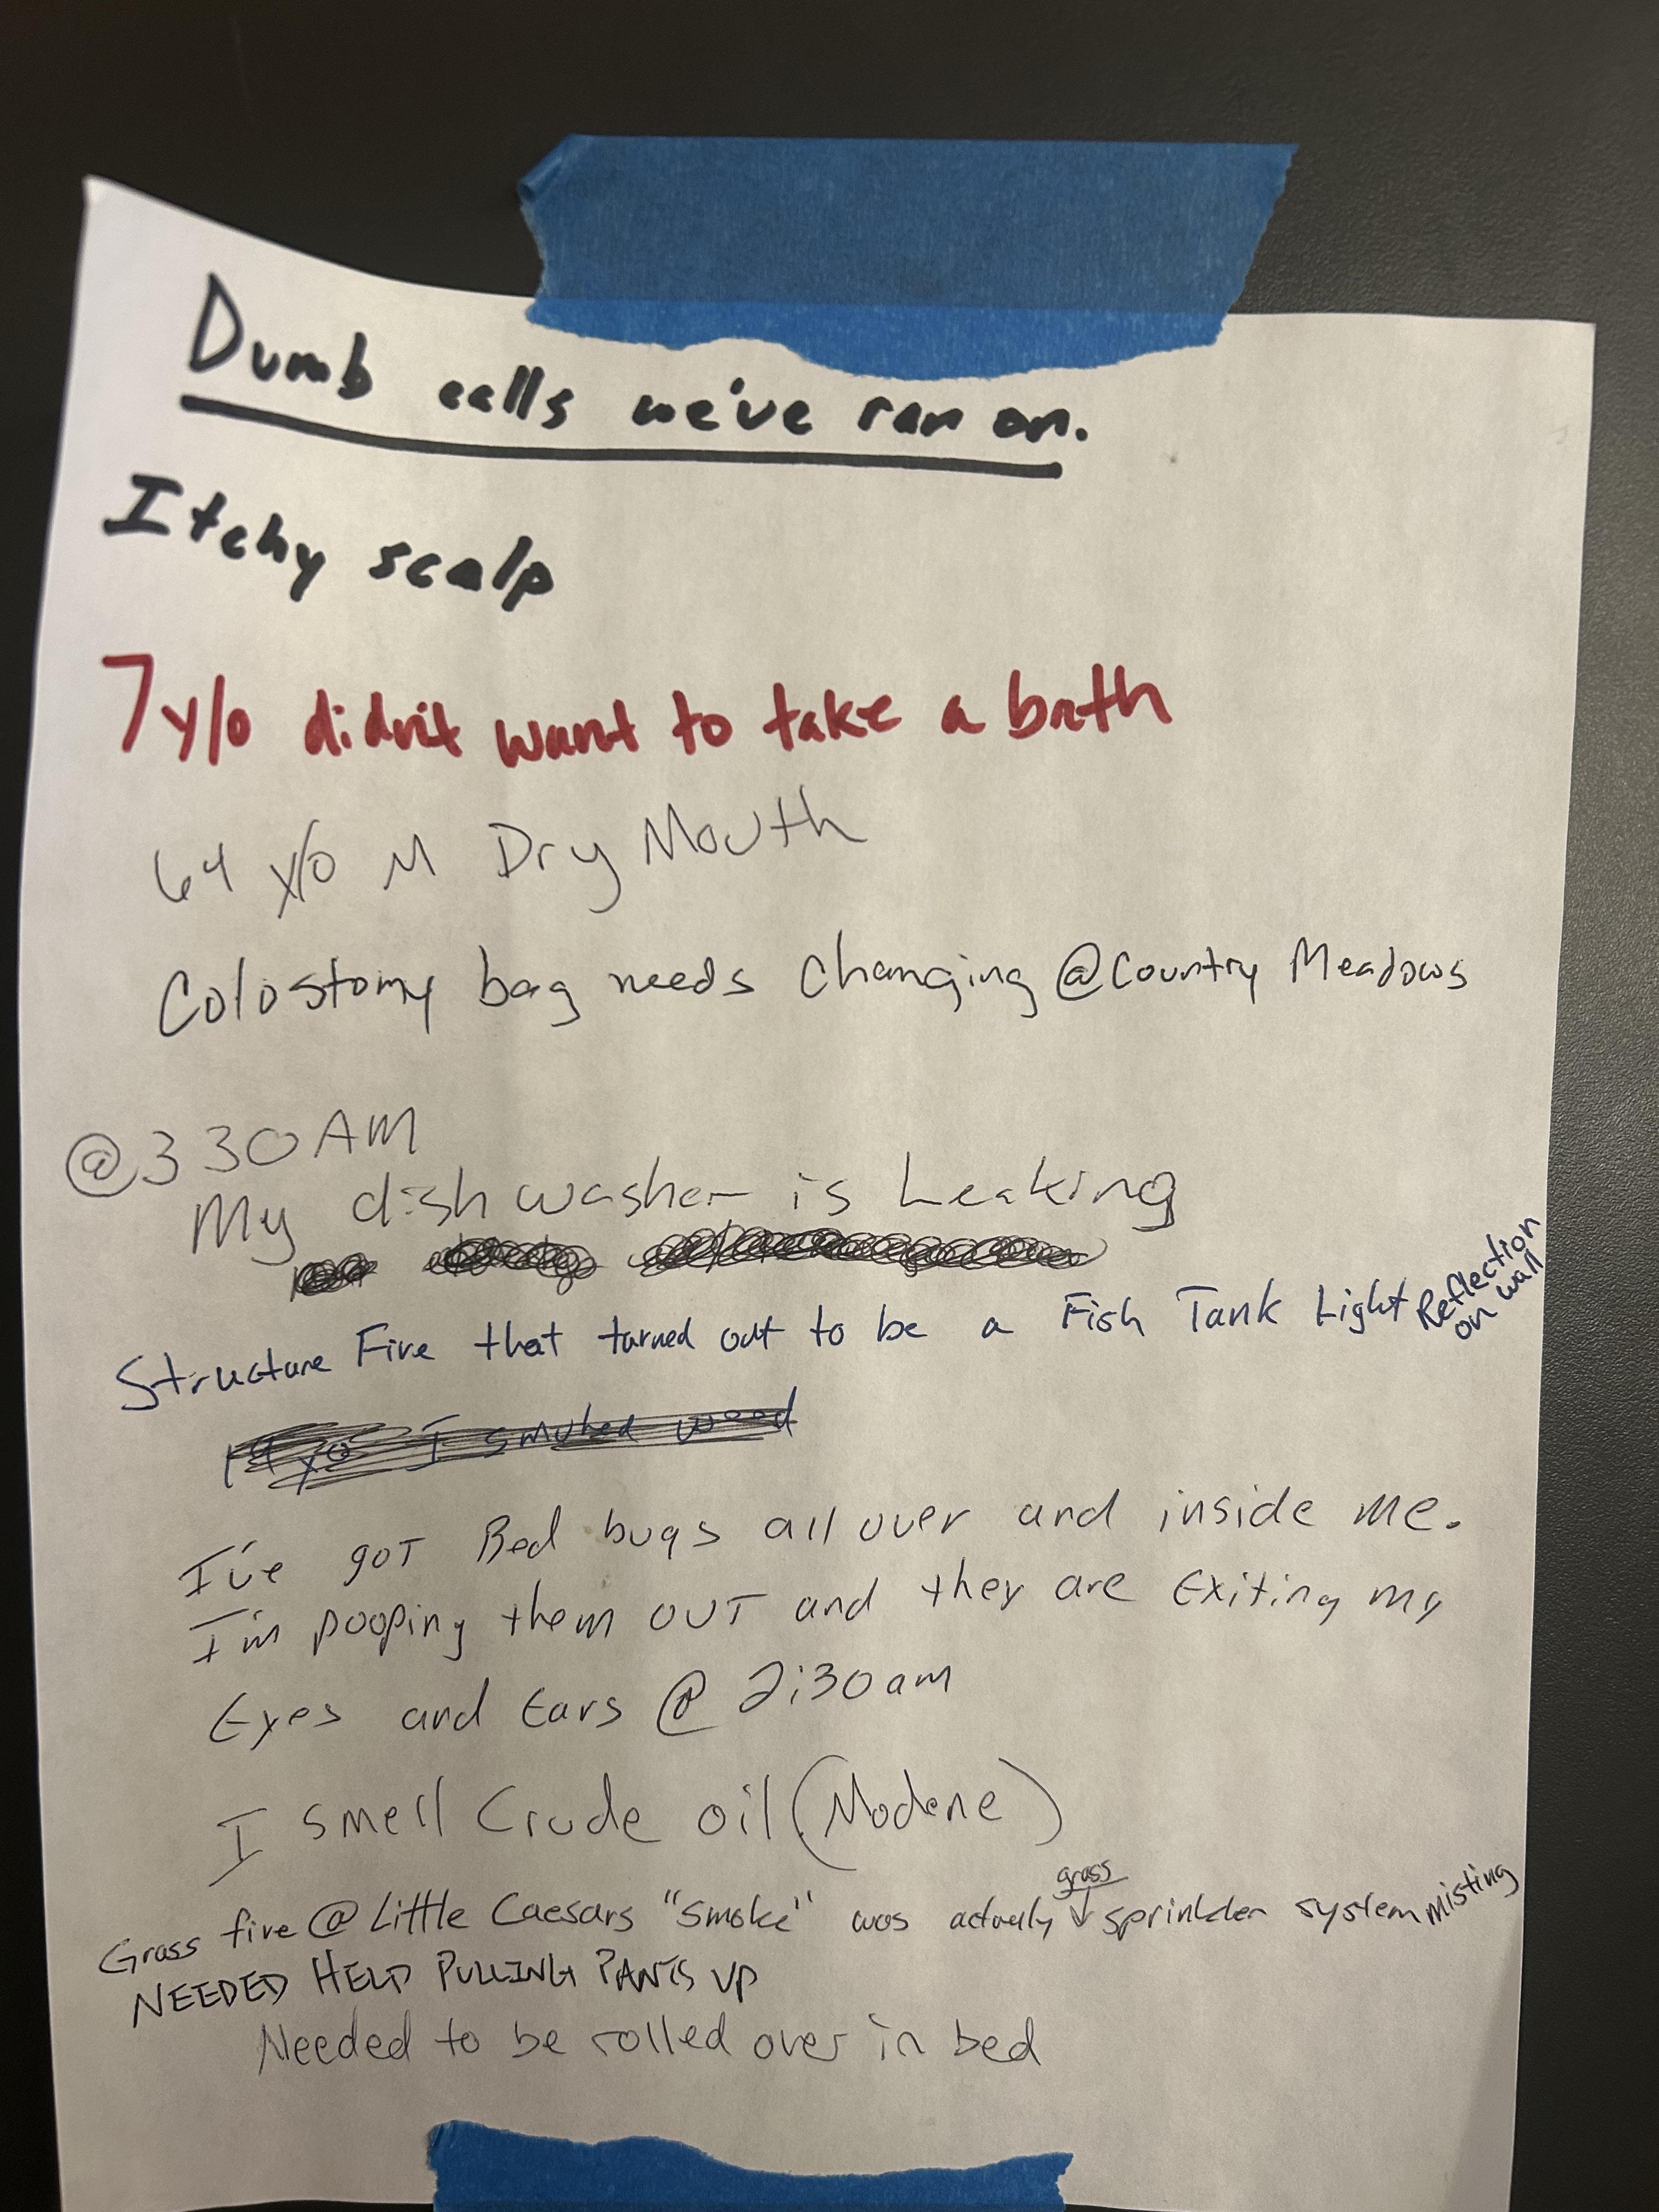 Dumb calls we've ran on.
Itchy scalp
7 y/o didn't want to take a bath
64 y/o M Dry Mouth
Colostomy bag needs changing @ Country Meadows
@ 3 30 AM
My dishwasher is Leaking
Structure Fire that turned out to be a Fish Tank Light Reflection on wall
yo I smoked weed
I've got Bed bugs all over and inside me.
I'm pooping them OUT and they are Exiting my
Eyes and Ears @ 2:30am
I smell Crude oil (Modene)
Grass fire @ Little Caesars "smoke" was actually grass sprinkler system misting
NEEDED HELP PULLING PANTS UP
Needed to be rolled over in bed